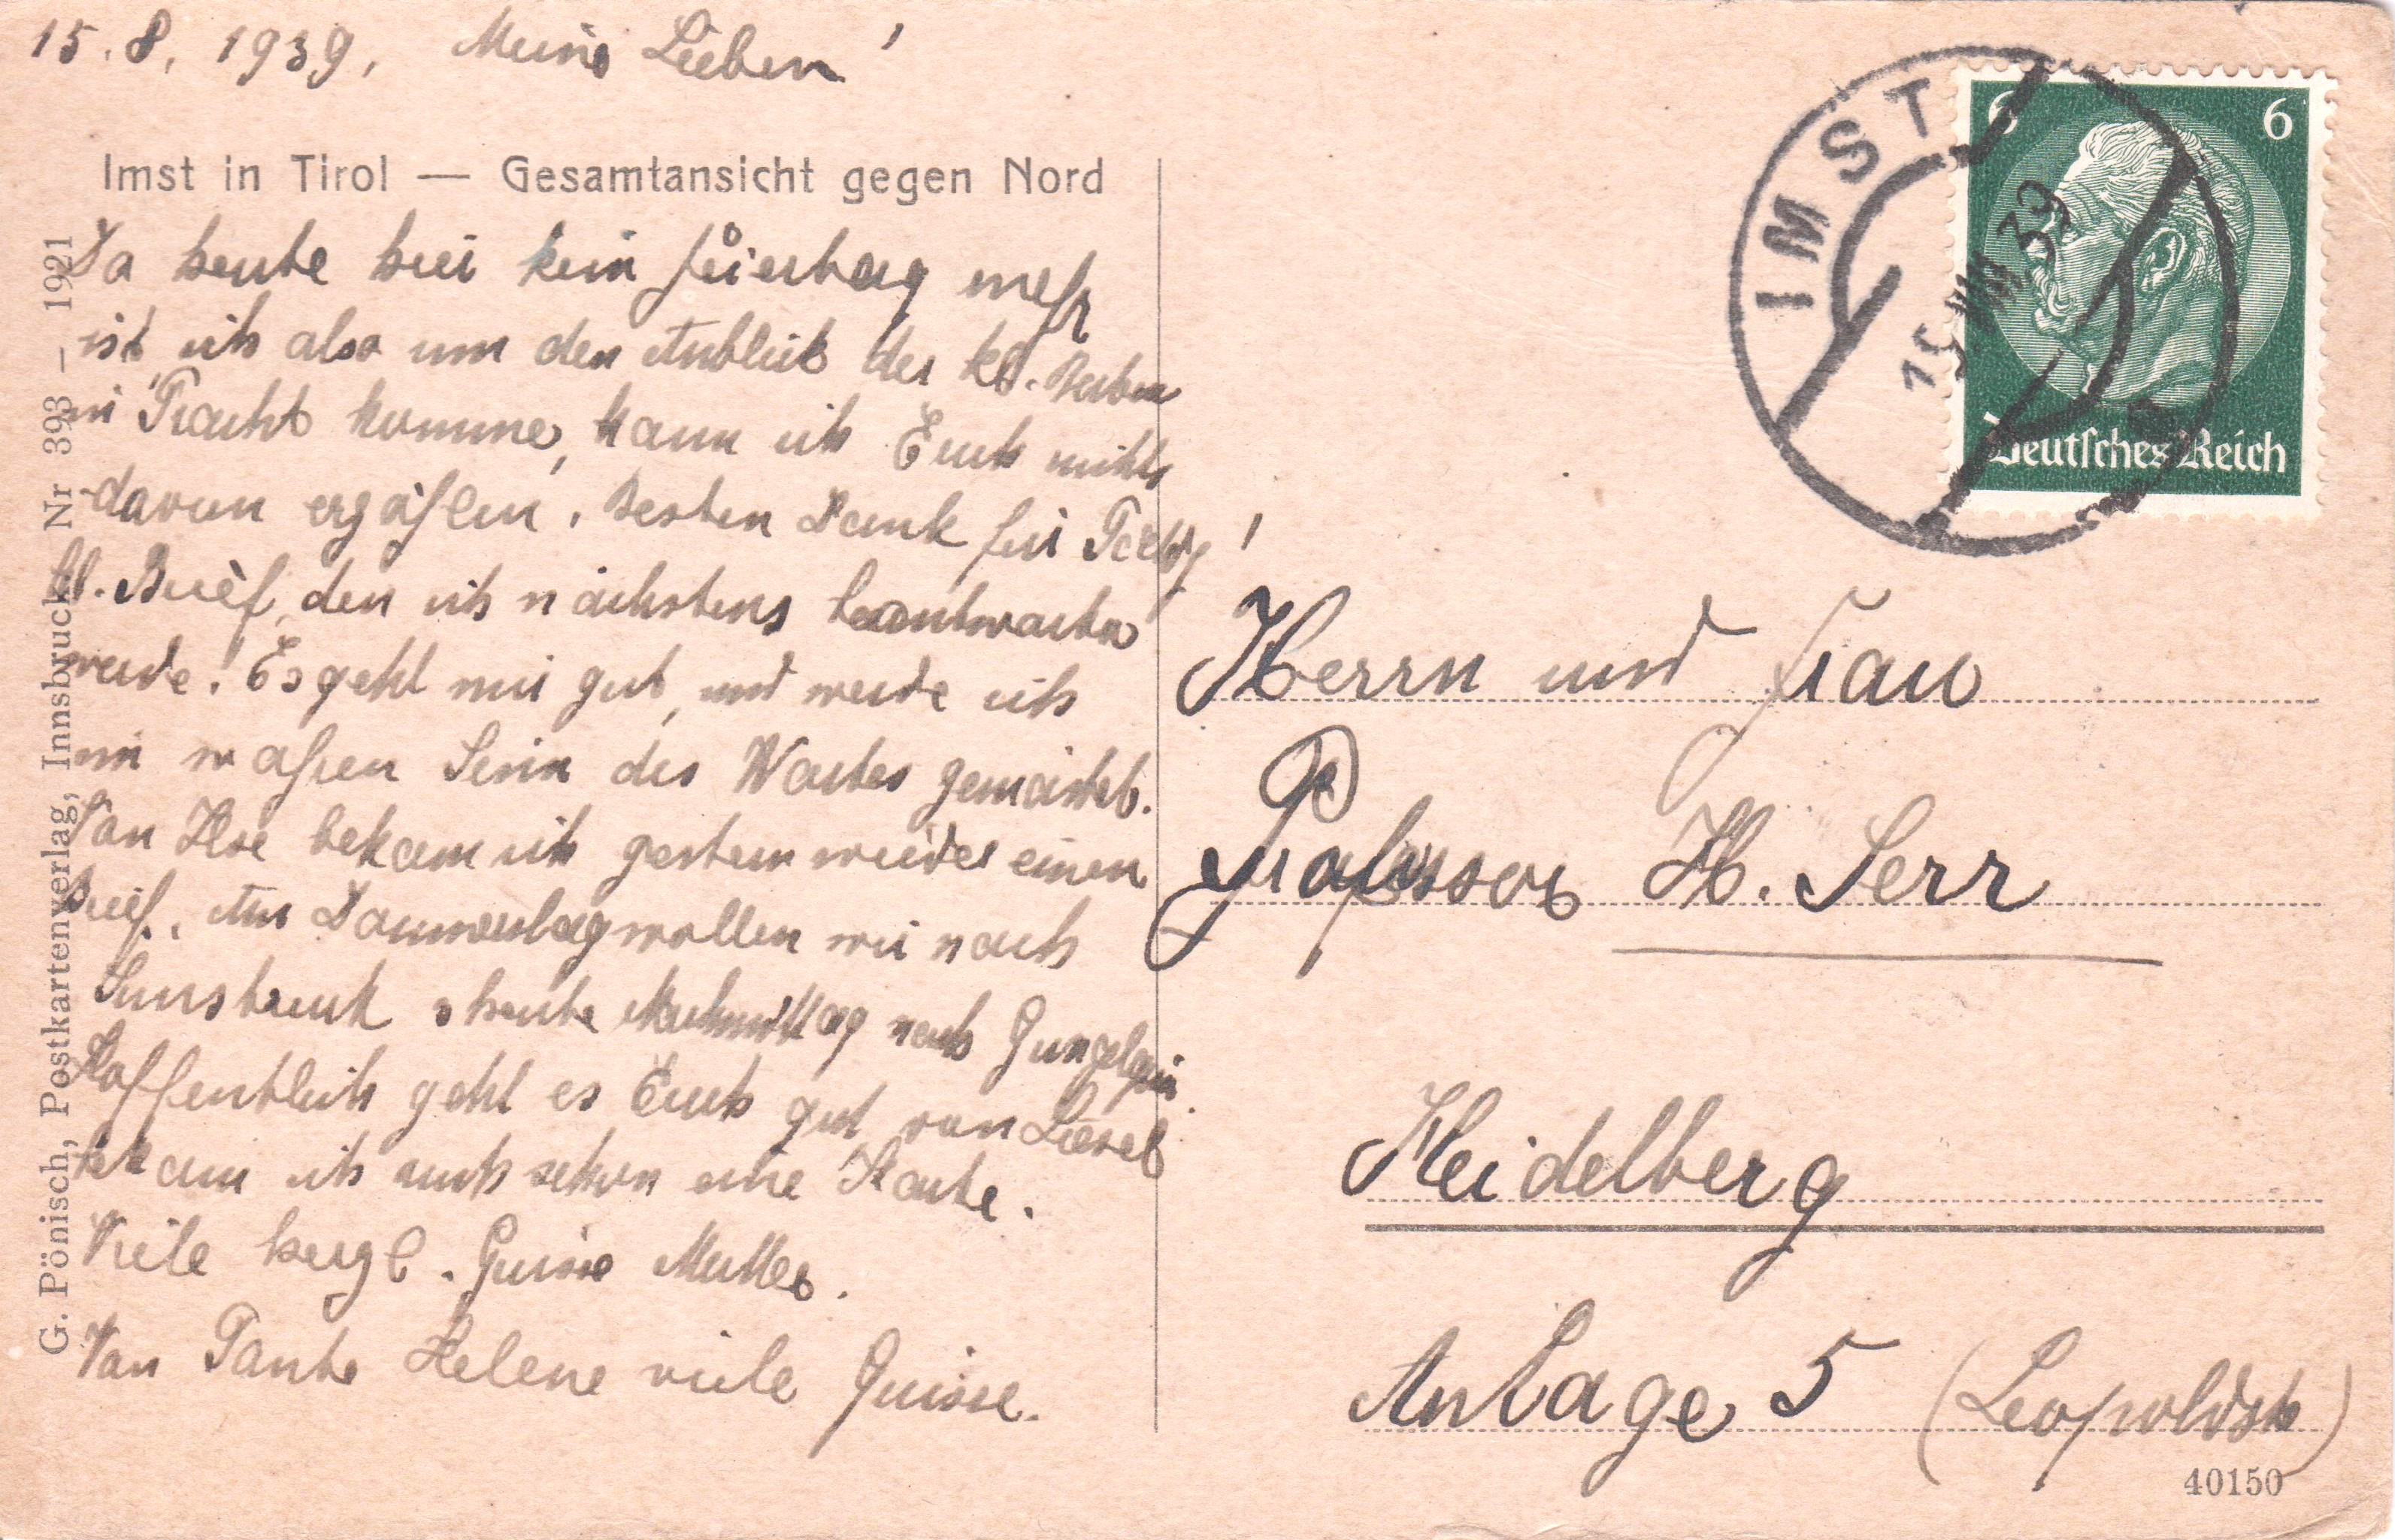 15.8.1939. Meine Lieben!
Imst in Tirol — Gesamtansicht gegen Nord
Da heute hier kein Feiertag mehr
ist, ich also um den Anblick der
in Tracht komme, kann ich Euch nichts
davon erzählen. Besten Dank für
lb. Brief, den ich nächstens beantworten
werde! Es geht mir gut, und werde ich
im wahren Sinn des Wortes gemästet.
Von Ilse bekam ich gestern wieder einen
Brief. Am Donnerstag wollen wir nach
Innsbruck, heute Nachmittag nach
Hoffentlich geht es Euch gut, von Liesel
bekam ich auch schon eine Karte.
Viele herzl. Grüsse Mutter.
Von Tante Helene viele Grüsse.
G. Pönisch, Postkartenverlag, Innsbruck, Nr 393 – 1921
IMST
15.VIII.39
6 6
Deutsches Reich
Herrn und Frau
Professor H. Serr
Heidelberg
Anlage 5 (Leopoldstr)
40150